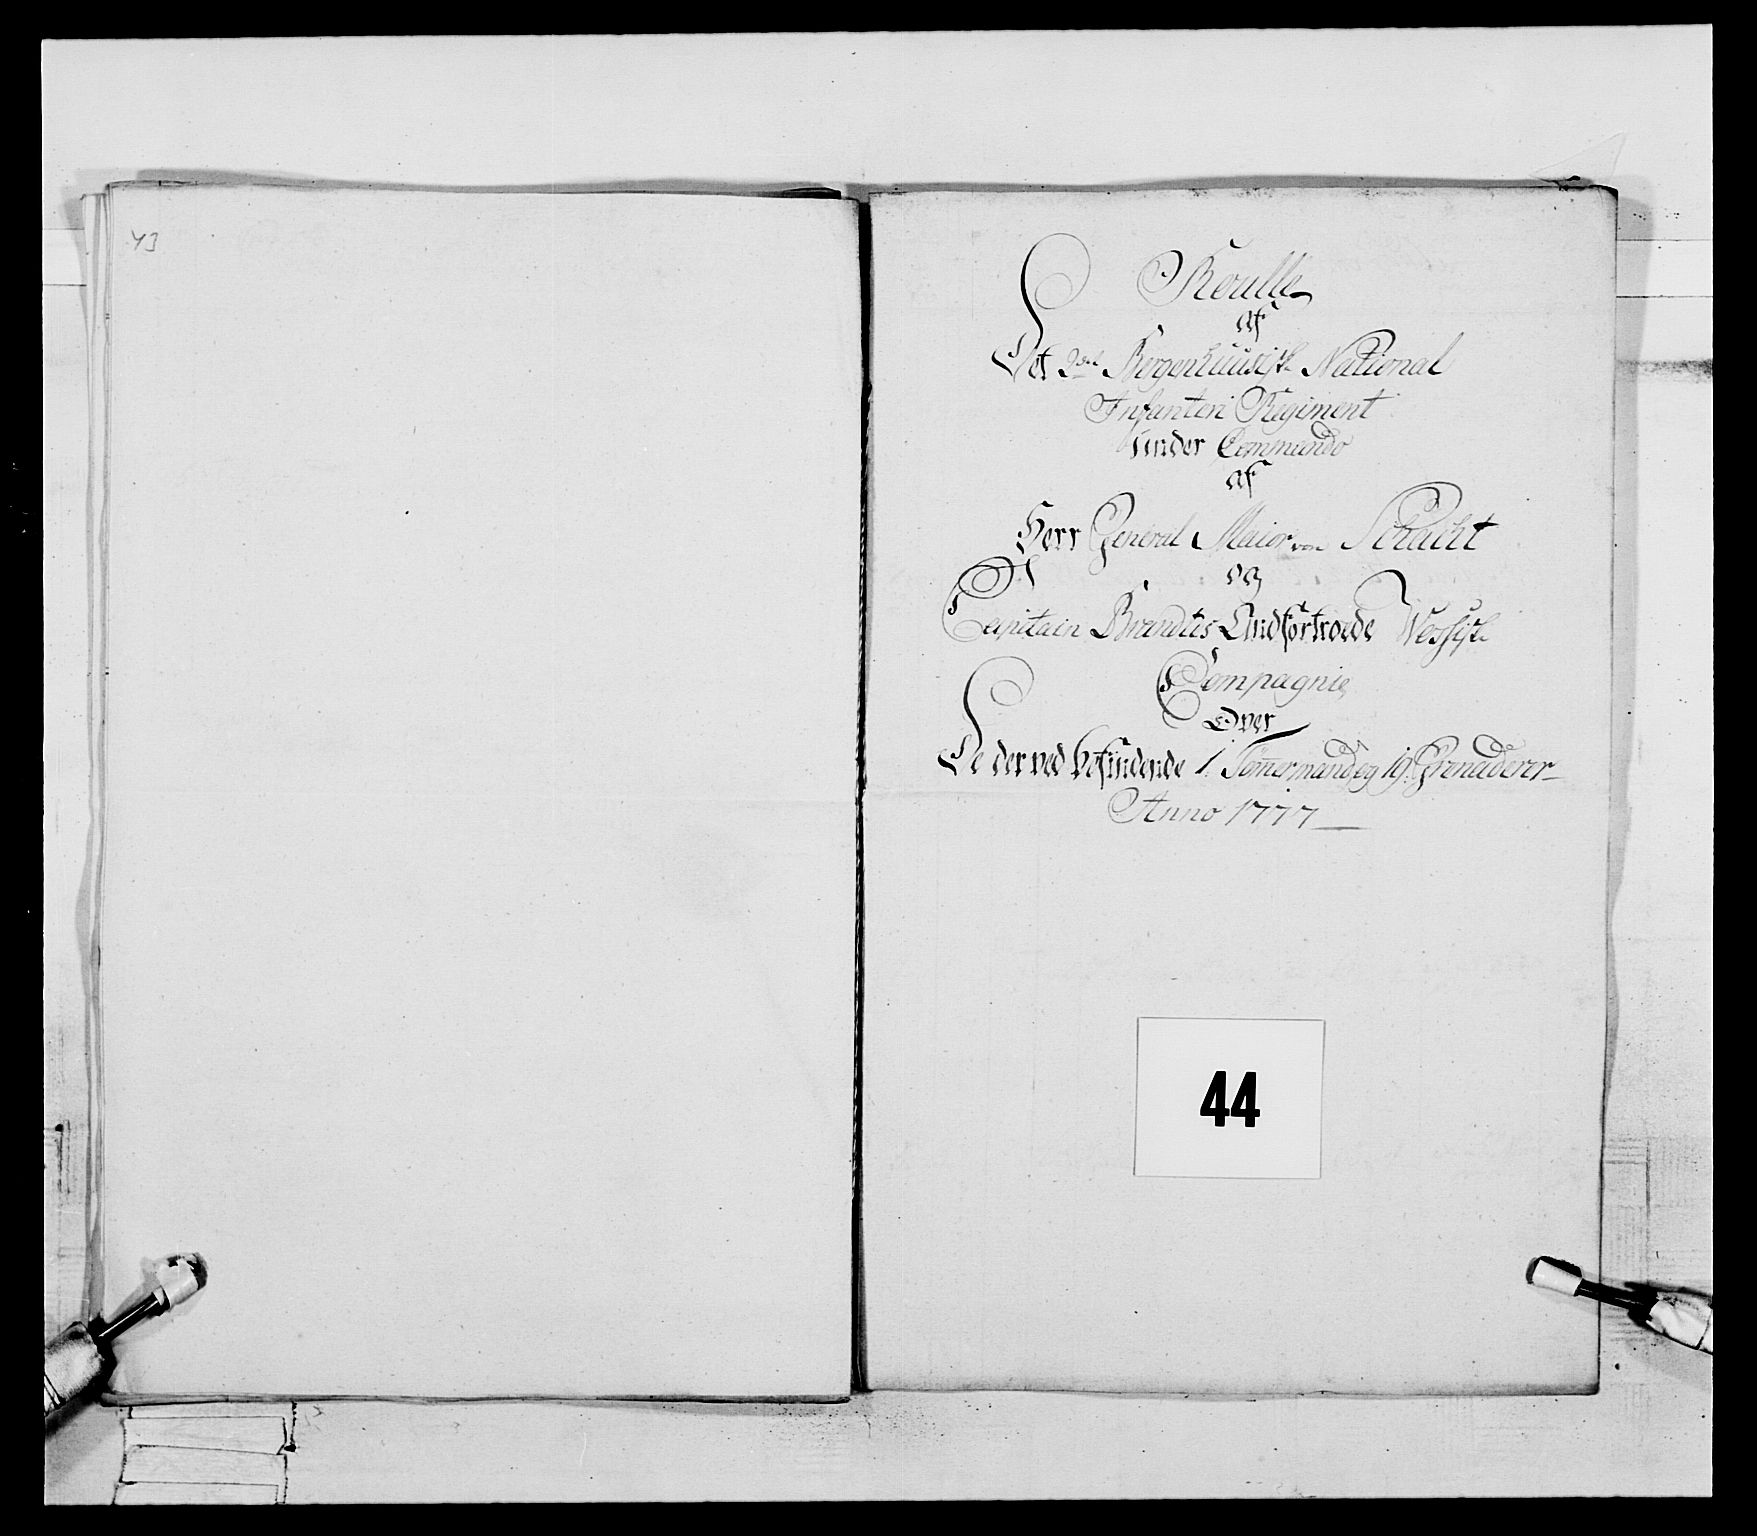 43
Roulle
Af
Det 2det Bergenhuusisk National
Infanteri Regiment
Under Commando
Af
Herr General Maior von Schacht
og
Capitain Brandtis Andfortroede Wossisk
Compagnie
Over
De der ved befindende 1. Tømermand og 19. Grenaderer
Anno 1777
44